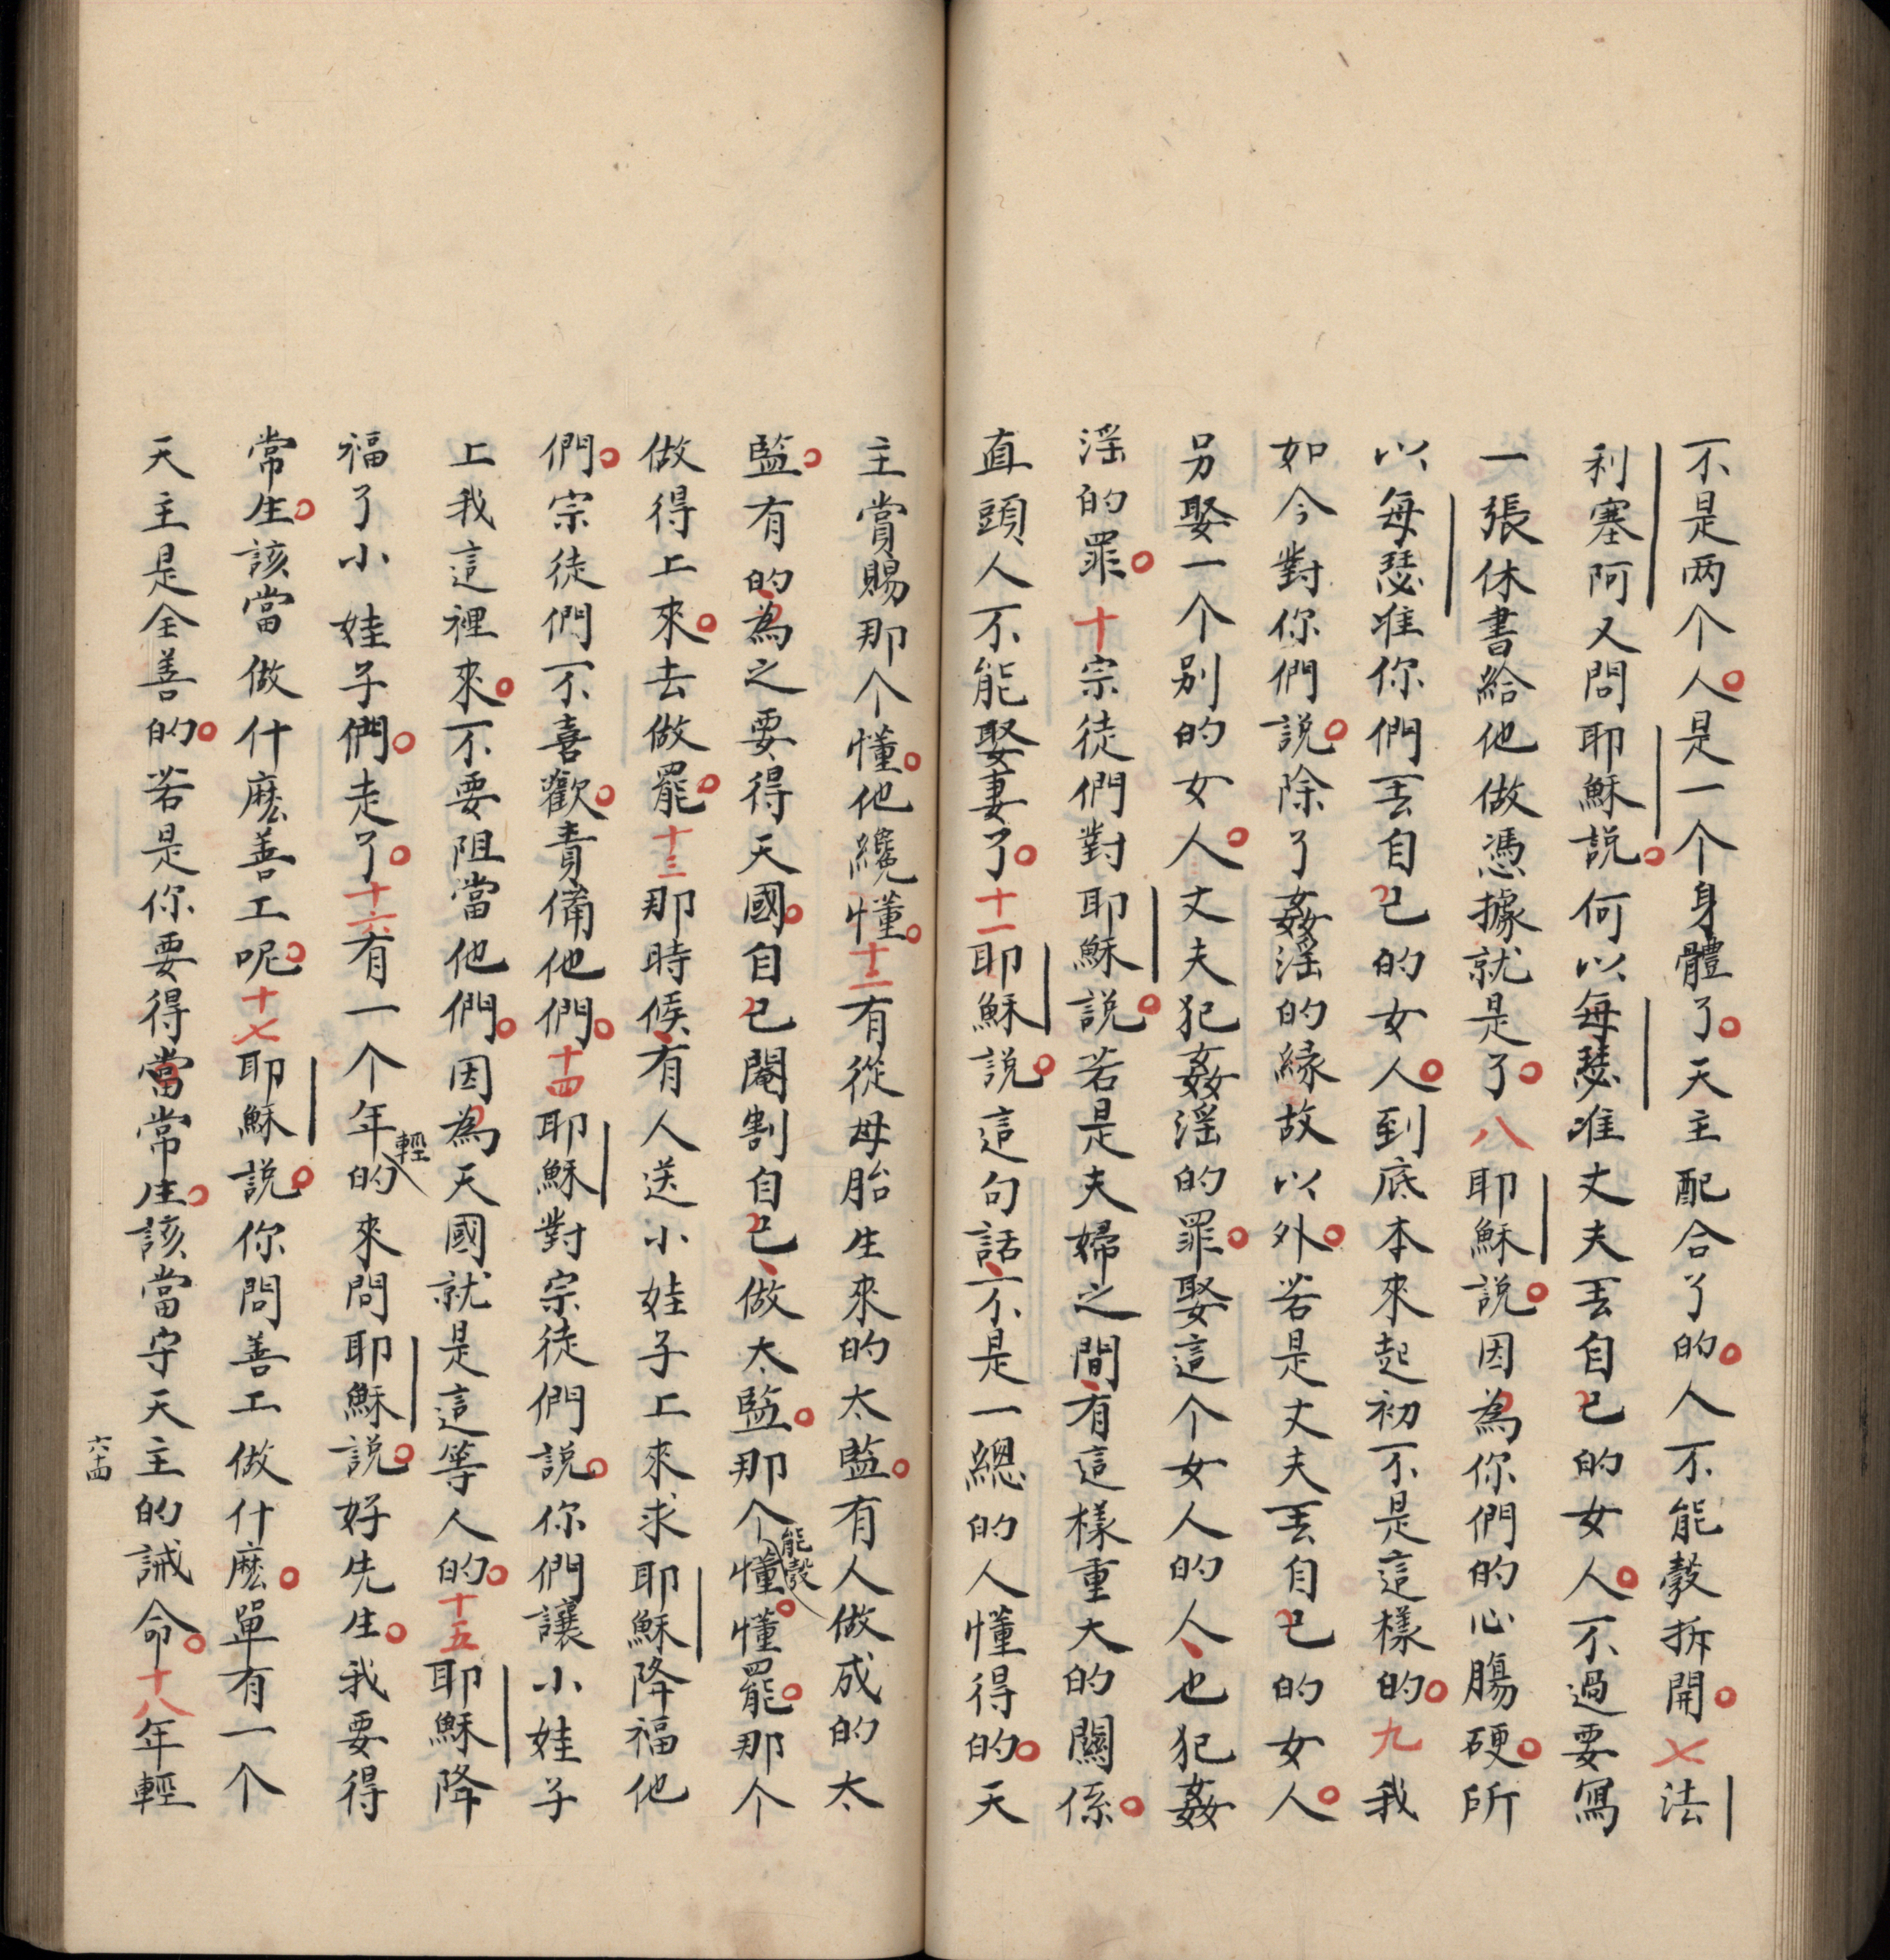 不是两个人。是一个身體了。天主配合了的。人不能彀拆開。七法
利塞阿又問耶穌説。何以每瑟准丈夫丟自己的女人。不過要寫
一張休書給他做憑據就是了。八耶穌説。因為你們的心腸硬。所
以每瑟准你們丟自己的女人。到底本來起初不是這樣的。九我
如今對你們説。除了姦淫的縁故以外。若是丈夫丟自己的女人。
另娶一个别的女人。丈夫犯姦淫的罪。娶這个女人的人、也犯姦
淫的罪。十宗徒們對耶穌説。若是夫婦之間、有這樣重大的關係。
直頭人不能娶妻了。十一耶穌説。這句話、不是一總的人懂得的。天
主賞賜那个懂。他纔懂。十二有從母胎生來的太監。有人做成的太
監。有的、為之要得天國。自己閹割自己、做太監。那个能彀懂。懂罷。那个
做得上來。去做罷。十三那時候、有人送小娃子上來求耶穌降福他
們。宗徒們不喜歡。責備他們。十四耶穌對宗徒們説。你們讓小娃子
上我這裡來。不要阻當他們。因為天國就是這等人的。十五耶穌降
福了小娃子們。走了。十六有一个年輕的來問耶穌説。好先生。我要得
常生。該當做什麽善工呢。十七耶穌説。你問善工做什麽。單有一个
天主是全善的。若是你要得當常生。該當守天主的誡命。十八年輕
六十四